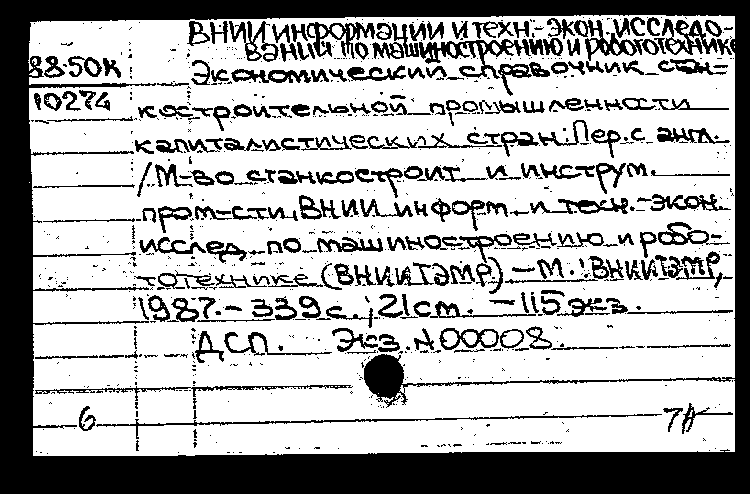 ВНИИ информации и техн.-экон. исследо-
ваний по машиностроению и робототехнике
88-50К
Экономический справочник стан-
10274
костроительной промышленности
капиталистических стран: Пер. с англ.
/М-во станкостроит. и инструм.
пром-сти, ВНИИ информ. и техн.-экон.
исслед. по машиностроению и робо-
тотехнике (ВНИИТЭМР) — М.: ВНИИТЭМР,
1987. - 339 с.; 21 cm. - 115 экз.
ДСП. Экз. № 00008.
6